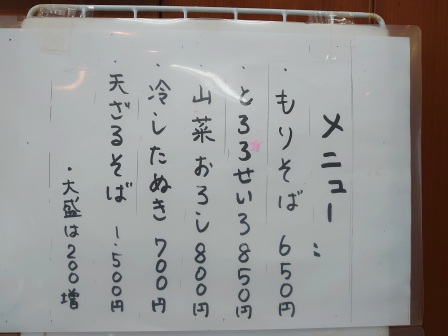 メニュー：
・もりそば 650円
・とろろせいろ 850円
・山菜おろし 800円
・冷したぬき 700円
・天ざるそば 1.500円
・大盛は200増